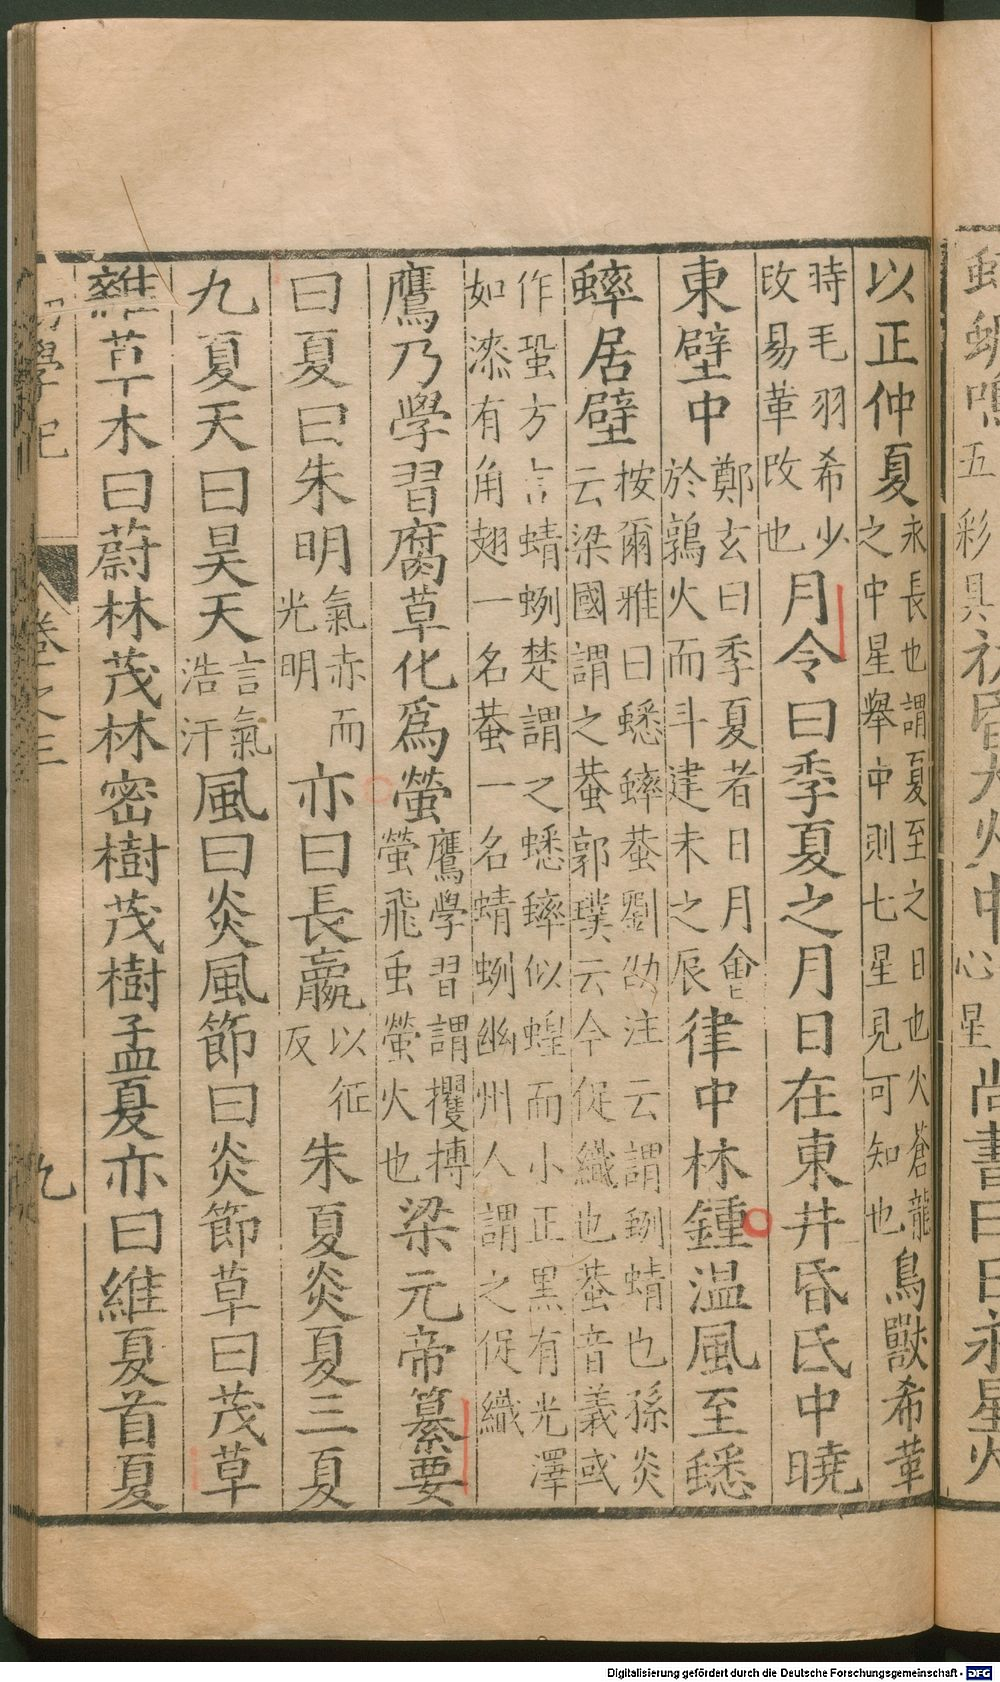 蚓鳴五彩具初昏大火中心星尚書曰日永星火
以正仲夏永長也謂夏至之日也火蒼龍之中星舉中則七星見可知也鳥獸希革
時毛羽希少改易革改也月令曰季夏之月日在東井昏氐中曉
東壁中鄭玄曰季夏者日月會於鶉火而斗建未之辰律中林鍾温風至蟋
蟀居壁按爾雅曰蟋蟀蛬劉劭注云謂蛚蜻也孫炎云梁國謂之蛬郭璞云今促織也蛬音義或
作蛩方言蜻蛚楚謂之蟋蟀似蝗而小正黑有光澤如漆有角翅一名蛬一名蜻蛚幽州人謂之促織
鷹乃學習腐草化爲螢鷹學習謂攫搏螢飛虫螢火也梁元帝纂要
曰夏曰朱明氣赤而光明亦曰長嬴以征反朱夏炎夏三夏
九夏天曰昊天言氣浩汗風曰炎風節曰炎節草曰茂草
雜草木曰蔚林茂林密樹茂樹孟夏亦曰維夏首夏
初學記 卷之三 九
Digitalisierung gefördert durch die Deutsche Forschungsgemeinschaft - DFG